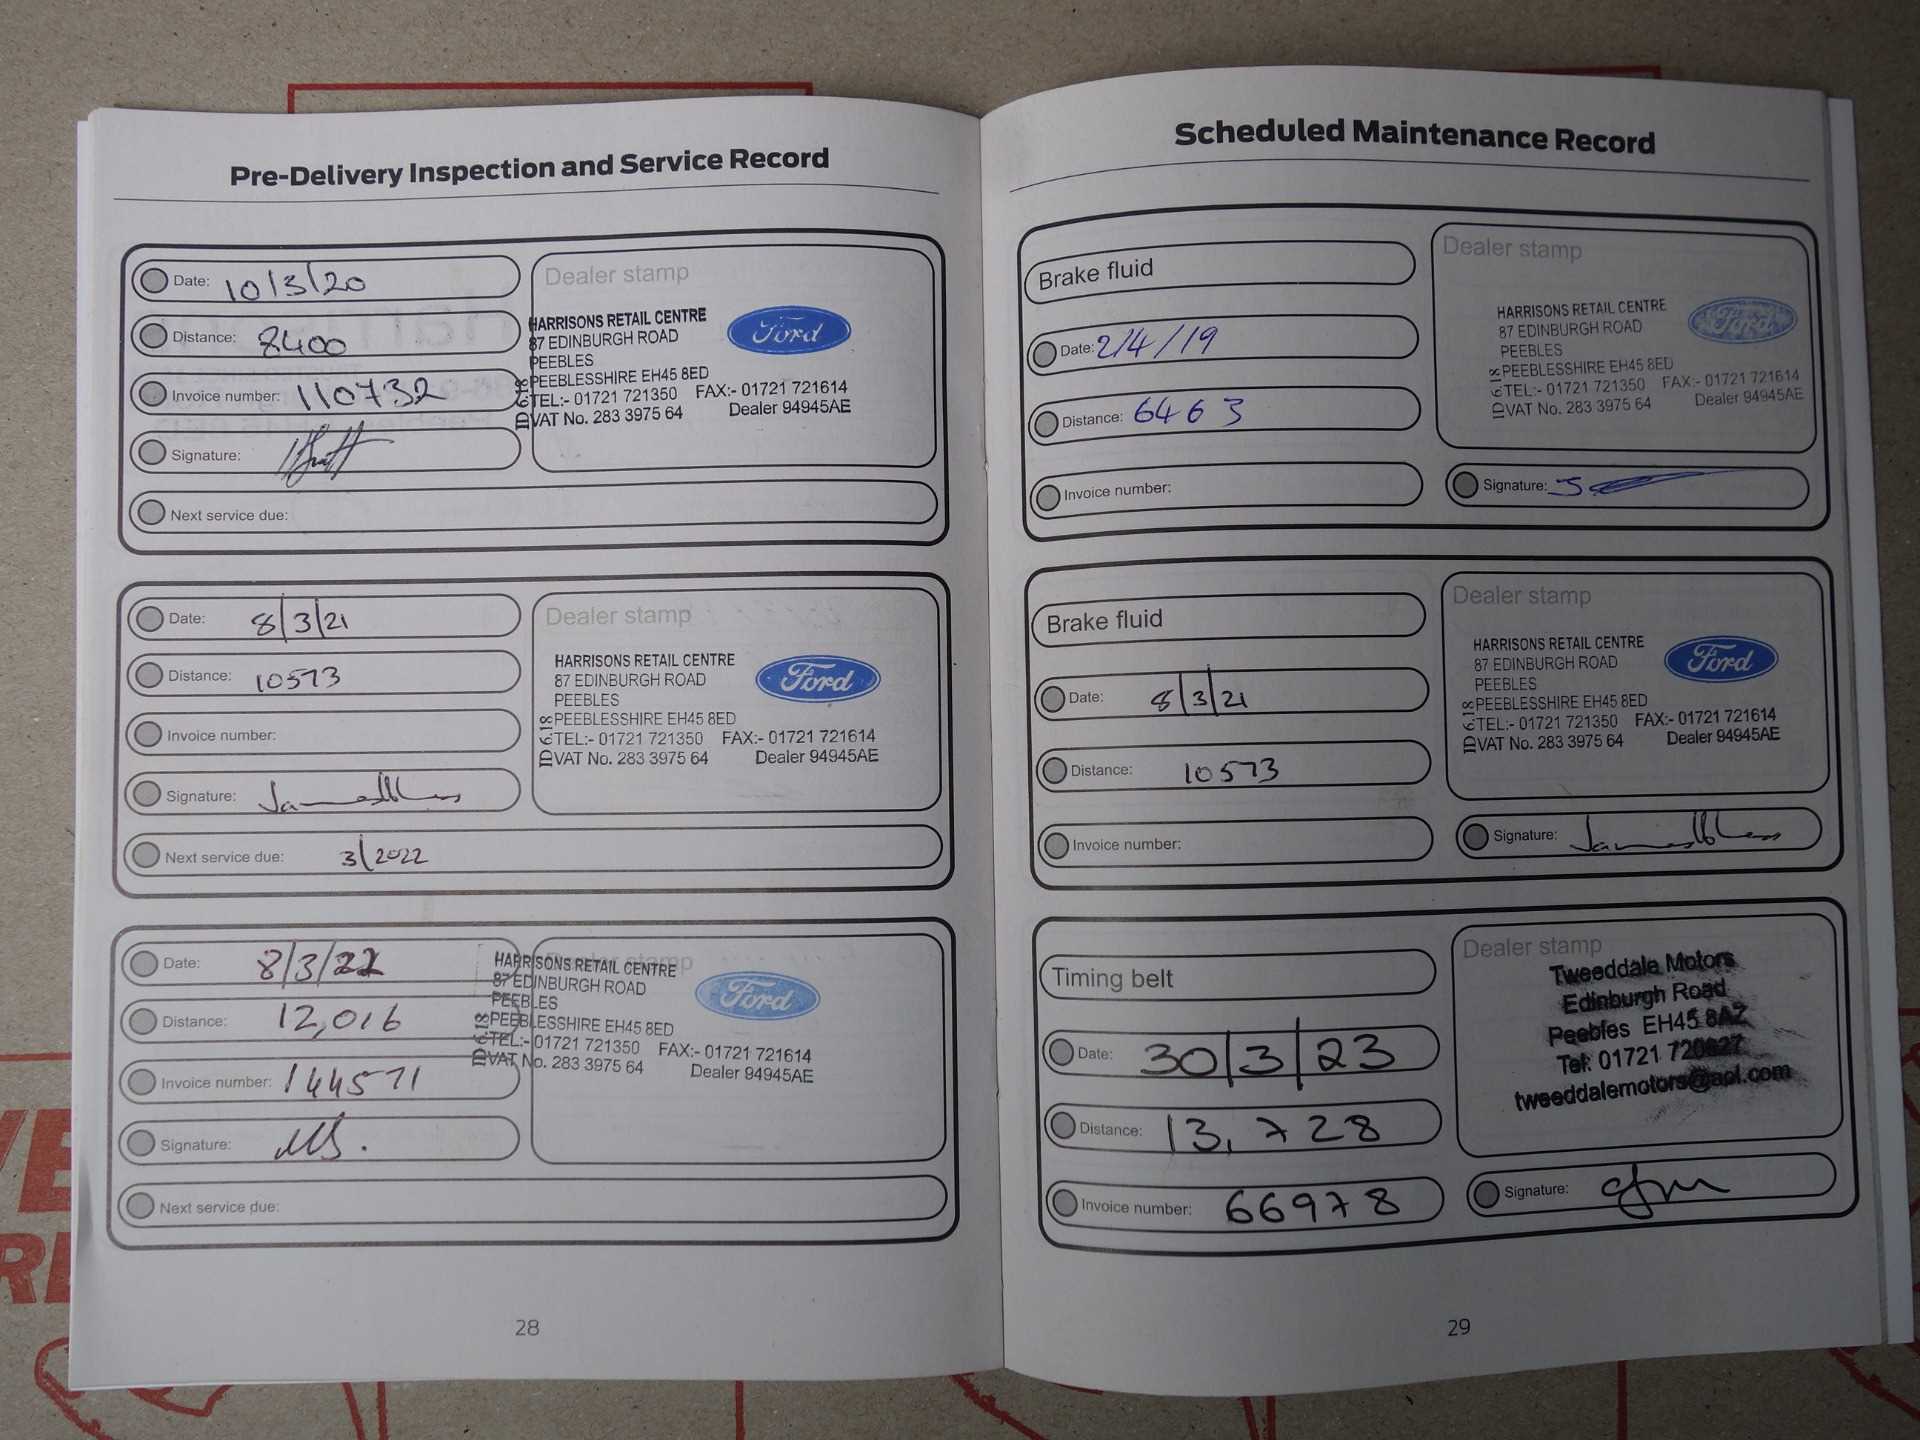 Pre-Delivery Inspection and Service Record
Date: 10/3/20
Distance: 8400
Invoice number: 110732
Signature:
Next service due:
Dealer stamp
HARRISONS RETAIL CENTRE
87 EDINBURGH ROAD
PEEBLES
PEEBLESSHIRE EH45 8ED
TEL:- 01721 721350 FAX:- 01721 721614
VAT No. 283 3975 64 Dealer 94945AE
ID 6.18
Ford
Date: 8/3/21
Distance: 10573
Invoice number:
Signature:
Next service due: 3/2022
Dealer stamp
HARRISONS RETAIL CENTRE
87 EDINBURGH ROAD
PEEBLES
PEEBLESSHIRE EH45 8ED
TEL:- 01721 721350 FAX:- 01721 721614
VAT No. 283 3975 64 Dealer 94945AE
ID 6.18
Ford
Date: 8/3/22
Distance: 12,016
Invoice number: 144571
Signature:
Next service due:
Dealer stamp
HARRISONS RETAIL CENTRE
87 EDINBURGH ROAD
PEEBLES
PEEBLESSHIRE EH45 8ED
TEL:- 01721 721350 FAX:- 01721 721614
VAT No. 283 3975 64 Dealer 94945AE
ID 6.18
Ford
28
Scheduled Maintenance Record
Brake fluid
Date: 2/4/19
Distance: 6463
Invoice number:
Dealer stamp
HARRISONS RETAIL CENTRE
87 EDINBURGH ROAD
PEEBLES
PEEBLESSHIRE EH45 8ED
TEL:- 01721 721350 FAX:- 01721 721614
VAT No. 283 3975 64 Dealer 94945AE
ID 6.18
Ford
Signature:
Brake fluid
Date: 8/3/21
Distance: 10573
Invoice number:
Dealer stamp
HARRISONS RETAIL CENTRE
87 EDINBURGH ROAD
PEEBLES
PEEBLESSHIRE EH45 8ED
TEL:- 01721 721350 FAX:- 01721 721614
VAT No. 283 3975 64 Dealer 94945AE
ID 6.18
Ford
Signature:
Timing belt
Date: 30/3/23
Distance: 13,728
Invoice number: 66978
Dealer stamp
Tweeddale Motors
Edinburgh Road
Peebles EH45 8AZ
Tel: 01721
tweeddalemotors@aol.com
Signature:
29